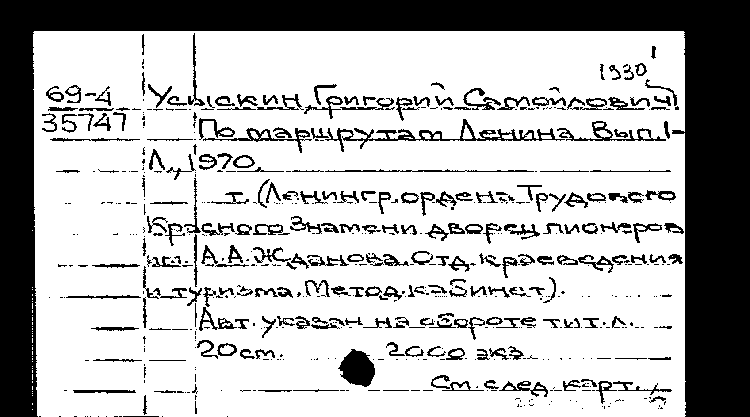 1930
69-4 Усыскин, Григорий Самойлович
35747 По маршрутам Ленина. Вып. 1-
Л., 1970.
т. (Ленингр. ордена Трудового
Красного Знамени дворец пионеров
им. А.А. Жданова. Отд. краеведения
и туризма. Метод. кабинет).
Авт. указан на обороте тит. л.
20 см. 2000 экз.
См. след. карт.